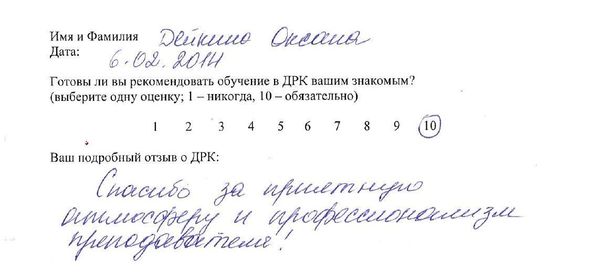 Имя и Фамилия Дейкина Оксана
Дата: 6.02.2014
Готовы ли вы рекомендовать обучение в ДРК вашим знакомым?
(выберите одну оценку; 1 – никогда, 10 – обязательно)
1 2 3 4 5 6 7 8 9 10
Ваш подробный отзыв о ДРК:
Спасибо за приятную
атмосферу и профессионализм
преподавателя!